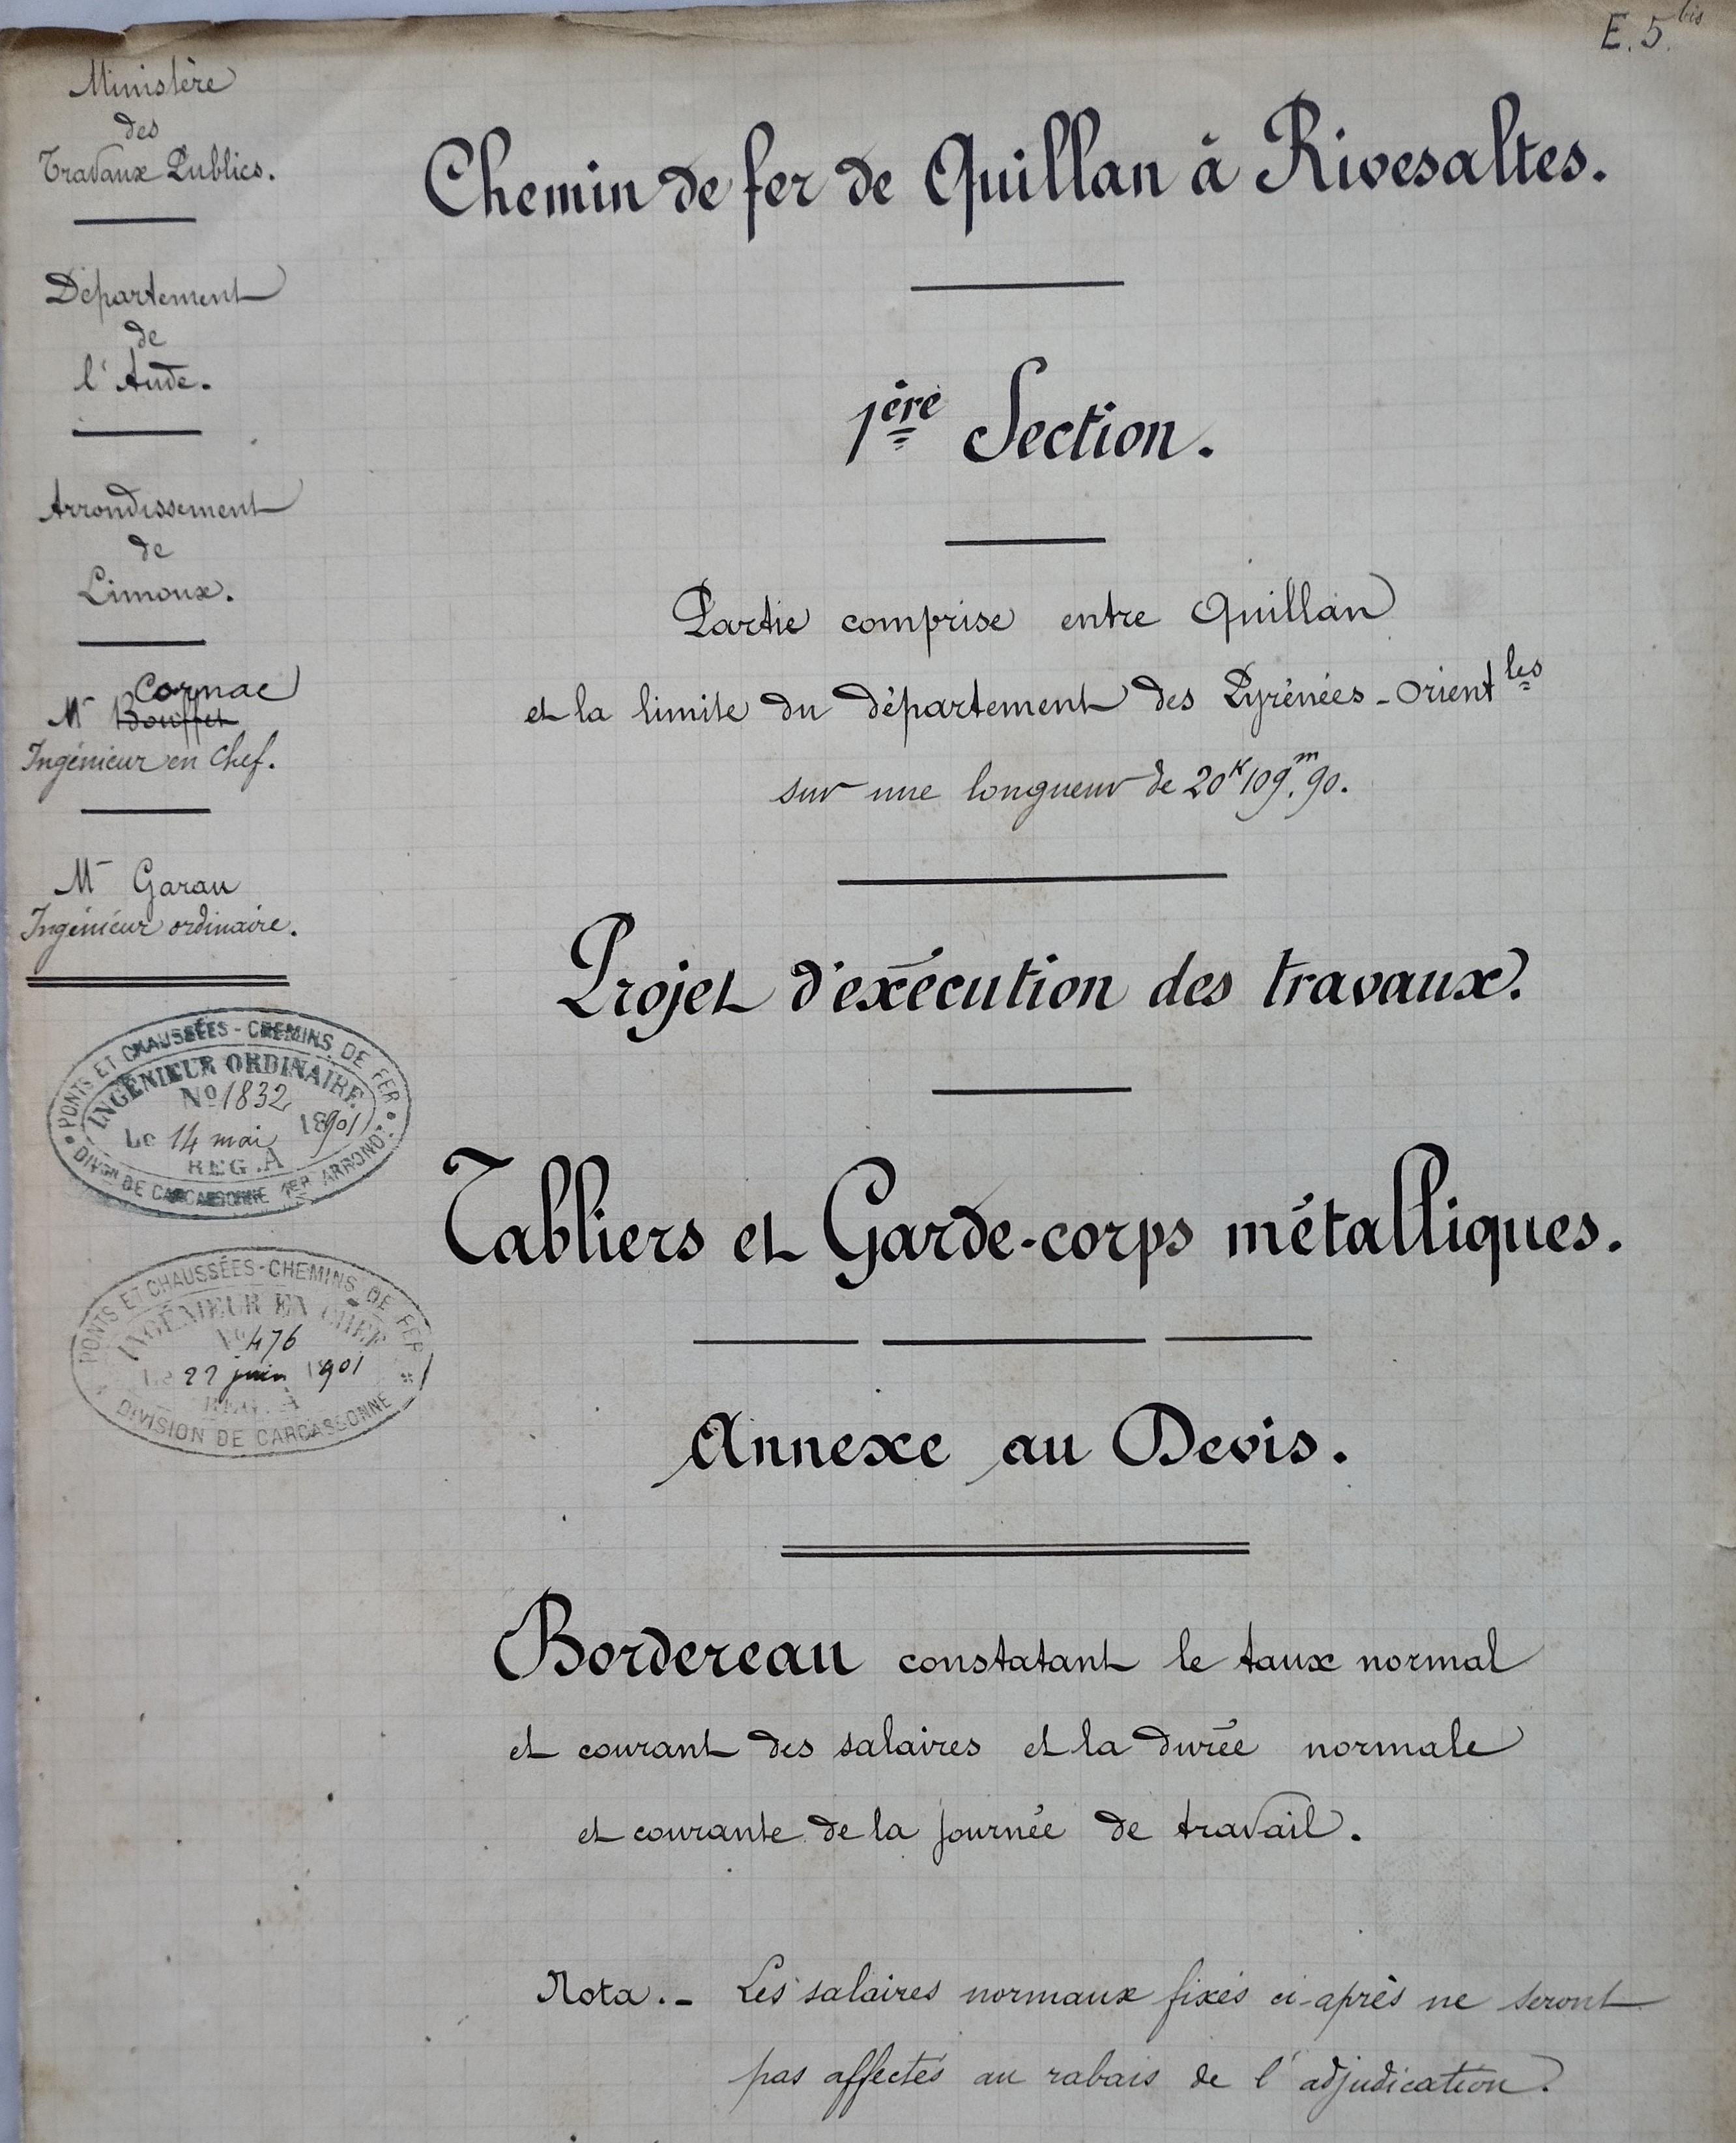 E. 5. bis
Ministère
des
Travaux Publics.
Département
de
l'Aude.
Arrondissement
de
Limoux.
Cornac
Mr Bouffet
Ingénieur en Chef.
Mr Garau
Ingénieur ordinaire.
PONTS ET CHAUSSÉES - CHEMINS DE FER
INGÉNIEUR ORDINAIRE
No 1832
Le 14 mai 1901
REG. A
DIVON DE CARCASSONNE 1ER ARROND.
PONTS ET CHAUSSÉES - CHEMINS DE FER
INGÉNIEUR EN CHEF
No 476
Le 22 juin 1901
REG. A
DIVISION DE CARCASSONNE
Chemin de fer de Quillan à Rivesaltes.
1ère Section.
Partie comprise entre Quillan
et la limite du département des Pyrénées-Orientles
sur une longueur de 20K109m,90.
Projet d'exécution des travaux.
Tabliers et Garde-corps métalliques.
Annexe au Devis.
Bordereau constatant le taux normal
et courant des salaires et la durée normale
et courante de la journée de travail.
Nota.- Les salaires normaux fixés ci-après ne seront
pas affectés au rabais de l'adjudication.